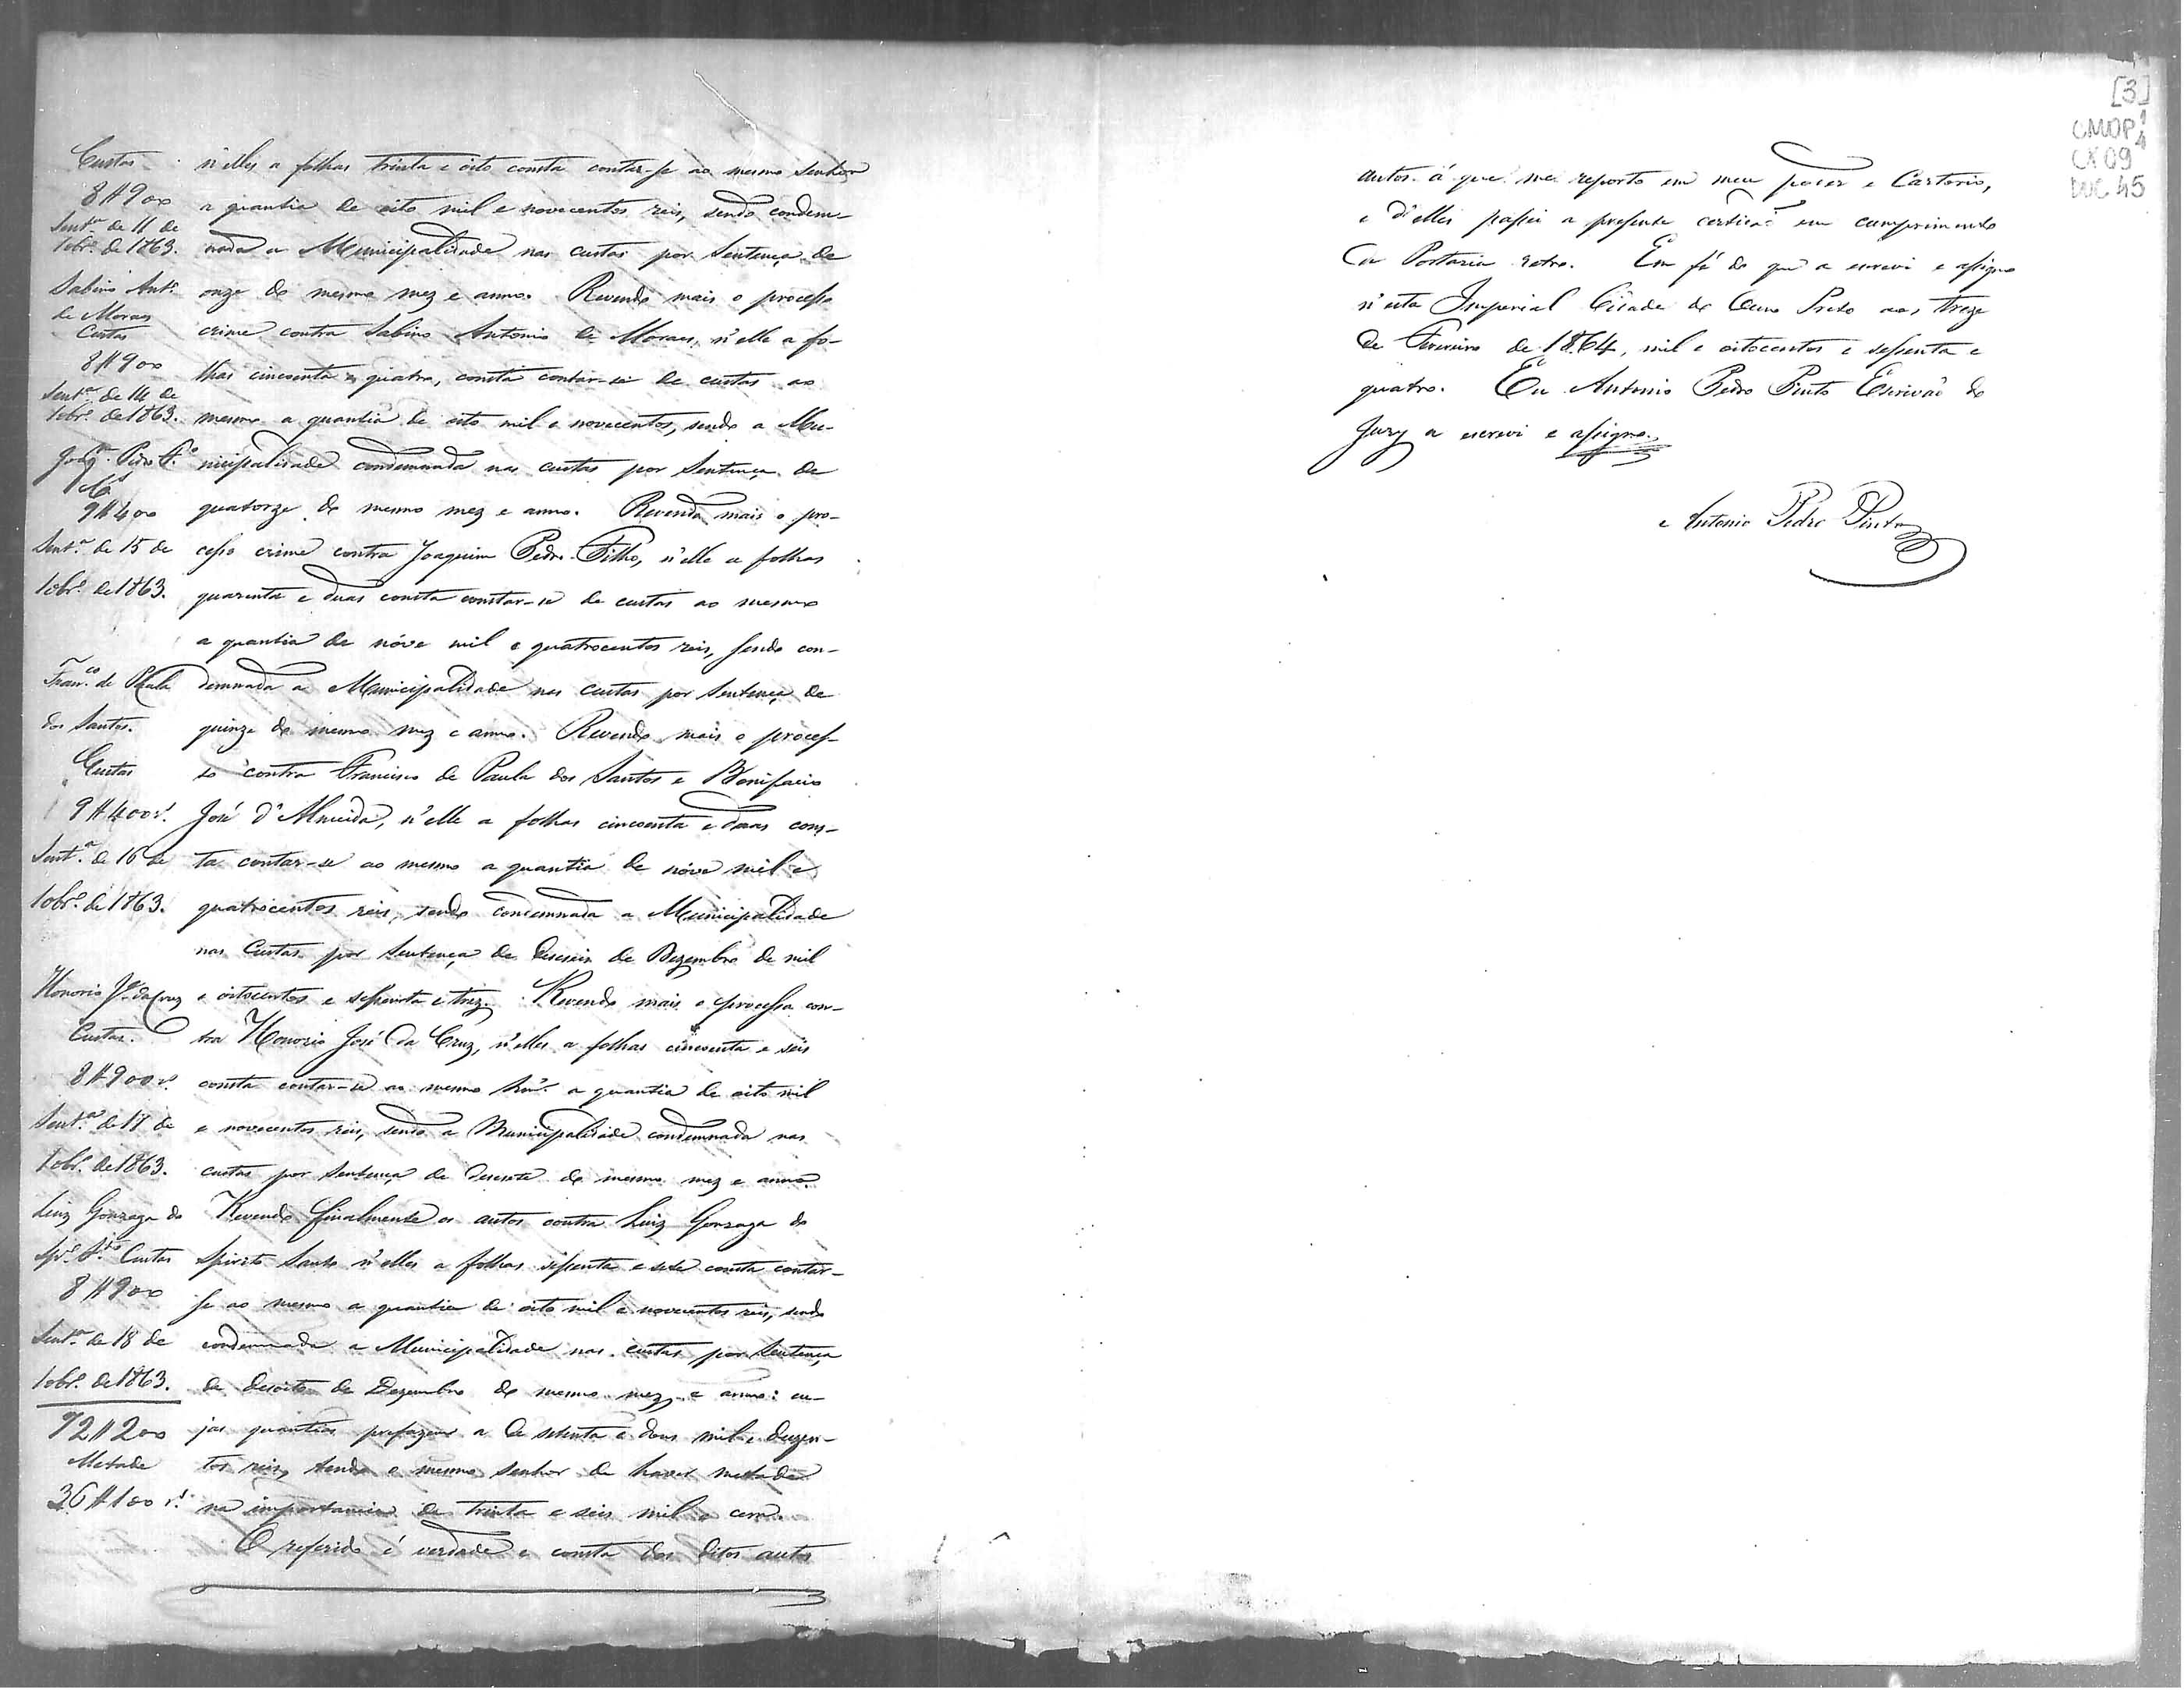 Custas
8#900
Sent.ª de 11 de
10br.º de 1863.
Sabino Ant.º
de Moraes
Custas
8#900
Sent.ª de 14 de
10br.º de 1863.
Joaq.m Pedro F.º
C.s
9#400
Sent.ª de 15 de
10br.º de 1863.
Fran.co de Paula
dos Santos.
Custas
9#400 r.s
Sent.ª de 16 de
10br.º de 1863.
Honorio J.e da Cruz
Custas.
8#900 r.s
Sent.ª de 17 de
10br.º de 1863.
Luiz Gonzaga do
Sp.º S.to Custas
8#900
Sent.ª de 18 de
10br.º de 1863.
72#200
Metade
36#100 r.s
n'elles a folhas trinta e oito consta contar-se ao mesmo Senhor
a quantia de oito mil e novecentos reis, sendo condem-
nada a Municipalidade nas custas por Sentença de
onze do mesmo mez e anno. Revendo mais o processo
crime contra Sabino Antonio de Moraes, n'elle a fo-
lhas cincoenta e quatro, consta contar-se de custas ao
mesmo a quantia de oito mil e novecentos, sendo a Mu-
nicipalidade condemnada nas custas por Sentença de
quatorze do mesmo mez e anno. Revendo mais o pro-
cesso crime contra Joaquim Pedro Filho, n'elle a folhas
quarenta e duas consta constar-se de custas ao mesmo
a quantia de nóve mil e quatrocentos reis, sendo con-
demnada a Municipalidade nas custas por Sentença de
quinze do mesmo mez e anno. Revendo mais o proces-
so contra Francisco de Paula dos Santos e Bonifacio
José d'Almeida, n'elle a folhas cincoenta e duas cons-
ta contar-se ao mesmo a quantia de nóve mil e
quatrocentos reis, sendo condemnada a Municipalidade
nas Custas por Sentença de deseseis de Dezembro de mil
e oitocentos e sessenta e trez. Revendo mais o processo con-
tra Honorio José da Cruz, n'elles a folhas cincoenta e seis
consta contar-se ao mesmo Snr. a quantia de oito mil
e novecentos reis, sendo a Municipalidade condemnada nas
custas por Sentença de desesete do mesmo mez e anno.
Revendo finalmente os autos contra Luiz Gonzaga do
Spirito Santo n'elles a folhas sessenta e sete consta contar-
se ao mesmo a quantia de oito mil e novecentos reis, sendo
condemnada a Municipalidade nas custas por Sentença
de desoito de Dezembro do mesmo mez e anno: cu-
jas quantias prefazem a de setenta e dous mil e duzen-
tos reis, tendo o mesmo Senhor de haver metade
na importancia de trinta e seis mil e cem.
O referido é verdade e consta dos ditos autos
[3]
CMOP 1/4
CX 09
DOC 45
autos á que me reporto em meu poder e Cartorio,
e d'elles passei a presente certicaõ em cumprimento
da Portaria retro. Em fé do que a escrevi e assigno
n'esta Imperial Cidade do Ouro Preto aos treze
de Fevereiro de 1864, mil e oitocentos e sessenta e
quatro. Eu Antonio Pedro Pinto Escrivaõ do
Jury a escrevi e assigno.
Antonio Pedro Pinto